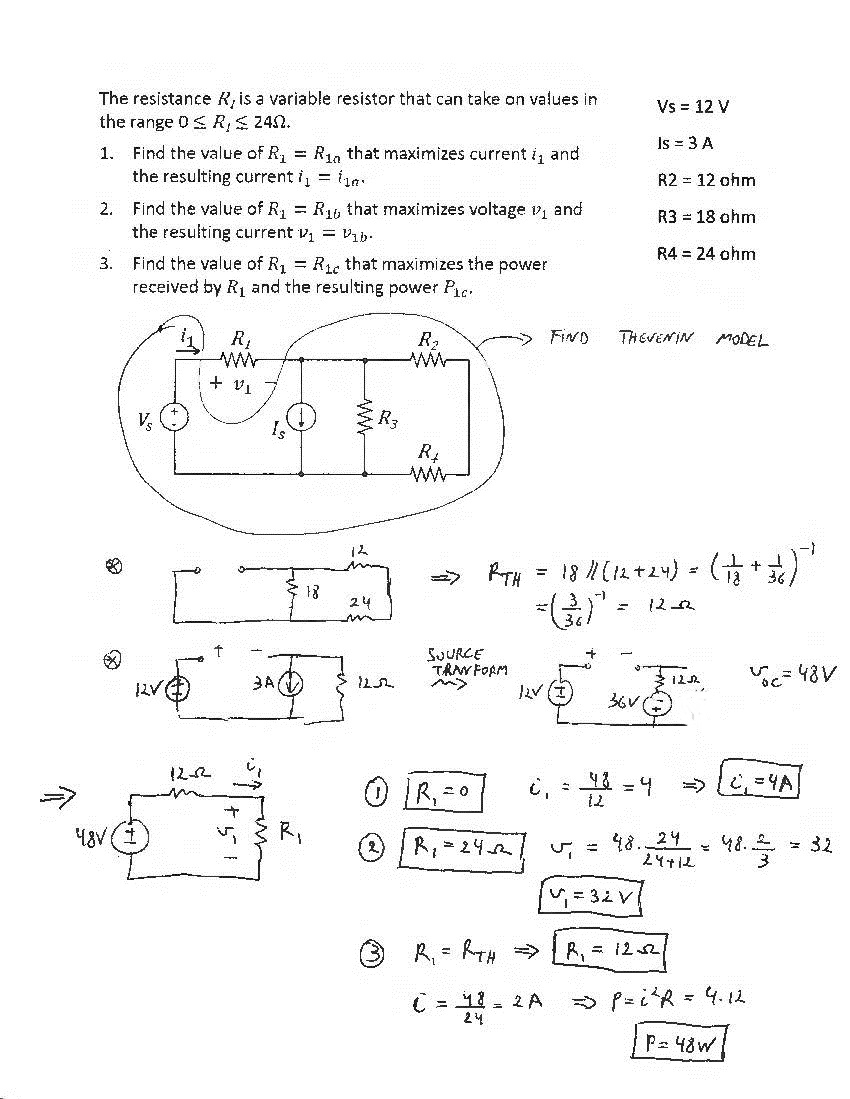 The resistance R₁ is a variable resistor that can take on values in
the range 0 ≤ R₁ ≤ 24Ω.
1. Find the value of R₁ = R₁ₐ that maximizes current i₁ and
the resulting current i₁ = i₁ₐ.
2. Find the value of R₁ = R₁b that maximizes voltage v₁ and
the resulting current v₁ = v₁b.
3. Find the value of R₁ = R₁c that maximizes the power
received by R₁ and the resulting power P₁c.
Vs = 12 V
Is = 3 A
R2 = 12 ohm
R3 = 18 ohm
R4 = 24 ohm
i₁ R₁ R₂
+ v₁ −
Vs + - Is R₃
R₄
→ FIND THEVENIN MODEL
⊛ 12
18
24
⇒ R_TH = 18 // (12+24) = (1/18 + 1/36)⁻¹
= (3/36)⁻¹ = 12 Ω
⊛ + −
12V 3A 12Ω
SOURCE
TRANFORM
+ −
12V 36V 12Ω
v_oc = 48V
⇒ 12Ω i₁
48V + v₁ − R₁
① R₁ = 0 i₁ = 48/12 = 4 ⇒ i₁ = 4A
② R₁ = 24Ω v₁ = 48 · 24/(24+12) = 48 · 2/3 = 32
v₁ = 32 V
③ R₁ = R_TH ⇒ R₁ = 12Ω
i = 48/24 = 2A ⇒ P = i²R = 4·12
P = 48W